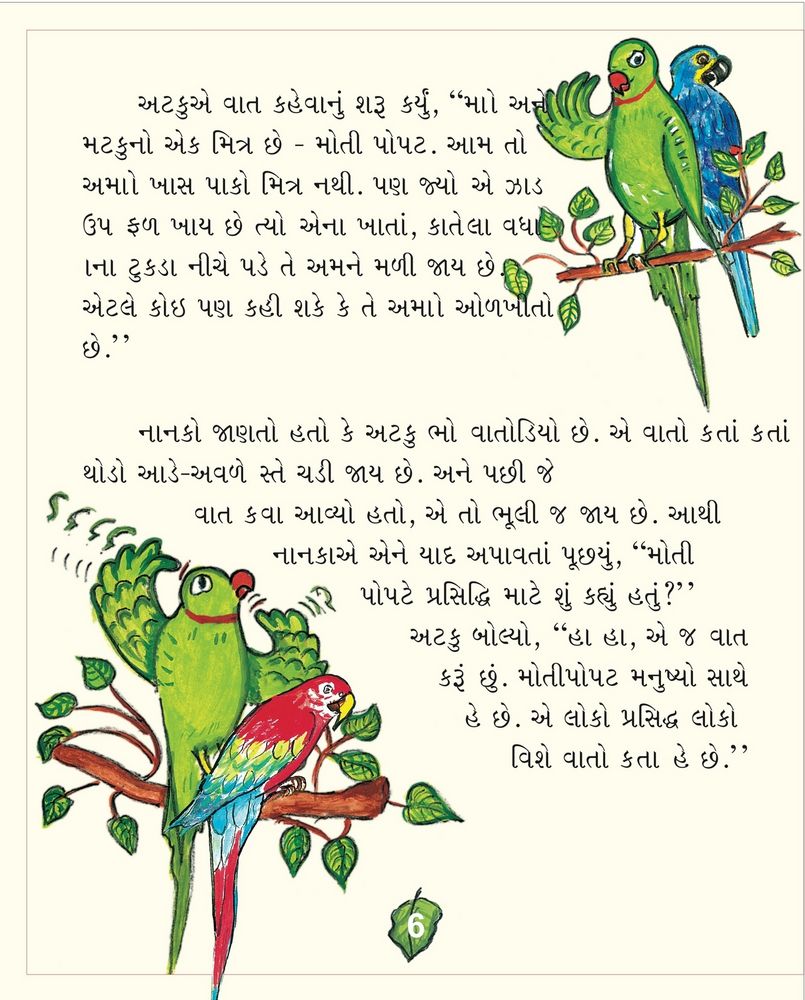 અટકુએ વાત કહેવાનું શરૂ કર્યું, “માો અને
મટકુનો એક મિત્ર છે - મોતી પોપટ. આમ તો
અમાો ખાસ પાકો મિત્ર નથી. પણ જ્યો એ ઝાડ
ઉપ ફળ ખાય છે ત્યો એના ખાતાં, કાતેલા વધા
ાના ટુકડા નીચે પડે તે અમને મળી જાય છે.
એટલે કોઇ પણ કહી શકે કે તે અમાો ઓળખીતો
છે.’’
નાનકો જાણતો હતો કે અટકુ ભો વાતોડિયો છે. એ વાતો કતાં કતાં
થોડો આડે-અવળે સ્તે ચડી જાય છે. અને પછી જે
વાત કવા આવ્યો હતો, એ તો ભૂલી જ જાય છે. આથી
નાનકાએ એને યાદ અપાવતાં પૂછયું, “મોતી
પોપટે પ્રસિદ્ધિ માટે શું કહ્યું હતું?’’
અટકુ બોલ્યો, “હા હા, એ જ વાત
કરૂં છું. મોતીપોપટ મનુષ્યો સાથે
હે છે. એ લોકો પ્રસિદ્ધ લોકો
વિશે વાતો કતા હે છે.’’
6